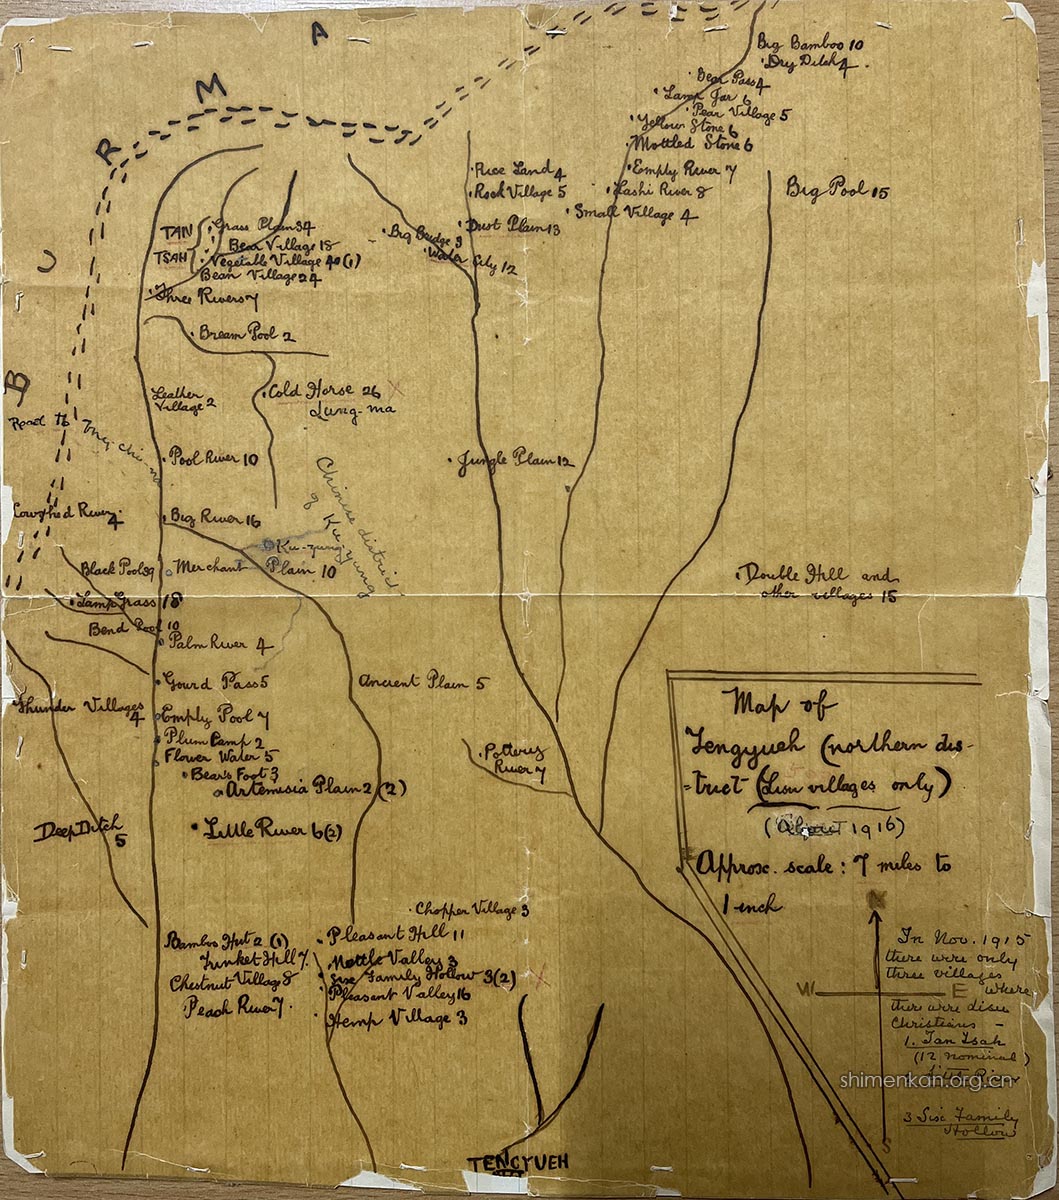 BURMA
Big Bamboo 10
Dry Ditch 4
Bear Pass 4
Lamp Jar 6
Pear Village 5
Yellow Stone 6
Mottled Stone 6
Empty River 7
Lashi River 8
Small Village 4
Big Pool 15
Rice Land 4
Rock Village 5
Dust Plain 13
Big Bridge 3
Water City 12
TAN
TSAH
Grass Plain 34
Bear Village 18
Vegetable Village 40 (1)
Bean Village 24
Three Rivers 7
Bream Pool 2
Leather
Village 2
Cold Horse 26 X
Lung-ma
Road to
Pool River 10
Jungle Plain 12
Chinese district
of Ku-yung
4
Big River 16
Ku-yung
Black Pool 39
Merchant Plain 10
Double Hill and
other villages 15
Lamp Grass 18
Bend Pool 10
Palm River 4
Gourd Pass 5
Ancient Plain 5
Thunder Villages
4
Empty Pool 7
Plum Camp 2
Flower Water 5
Bear's Foot 3
Artemisia Plain 2 (2)
Pottery
River 7
Deep Ditch
5
Little River 6 (2)
Map of
Tengyueh (northern dis-
-trict (Lisu villages only)
(About 1916)
Approx. scale: 7 miles to
1 inch
Chopper Village 3
Bamboo Hut 2 (1)
Pleasant Hill 11
Trinket Hill 7
Nettle Valley 3
Chestnut Village 8
Sise Family Hollow 3 (2) X
Pleasant Valley 16
Peach River 7
Hemp Village 3
N
W
E
S
In Nov. 1915
there were only
three villages
where
there were Lisu
Christians –
1. Tan Tsah
(12 nominal)
Little River
3 Sise Family
Hollow
shimenkan.org.cn
TENGYUEH